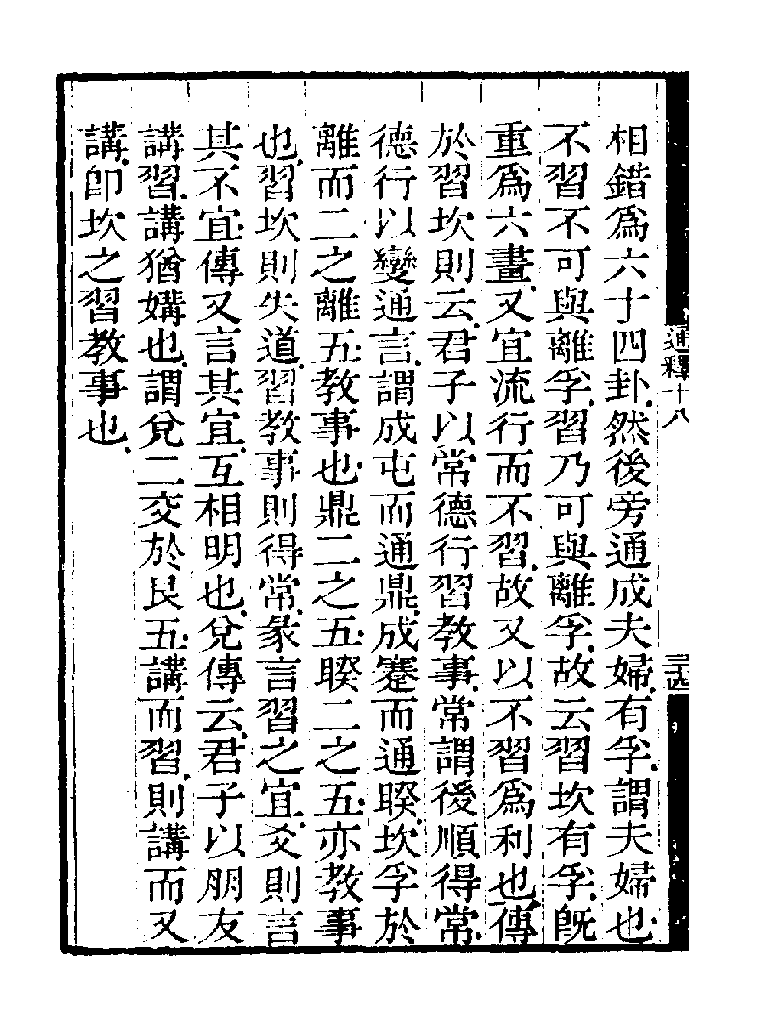 相錯爲六十四卦然後旁通成夫婦有孚謂夫婦也
不習不可與離孚習乃可與離孚故云習坎有孚旣
重爲六畫又宜流行而不習故又以不習爲利也傳
於習坎則云君子以常德行習教事常謂後順得常
德行以變通言謂成屯而通鼎成蹇而通睽坎孚於
離而二之離五教事也鼎二之五睽二之五亦教事
也習坎則失道習教事則得常彖言習之宜爻則言
其不宜傳又言其宜互相明也兌傳云君子以朋友
講習講猶媾也謂兌二交於艮五講而習則講而又
講卽坎之習教事也
通釋十八
三十四